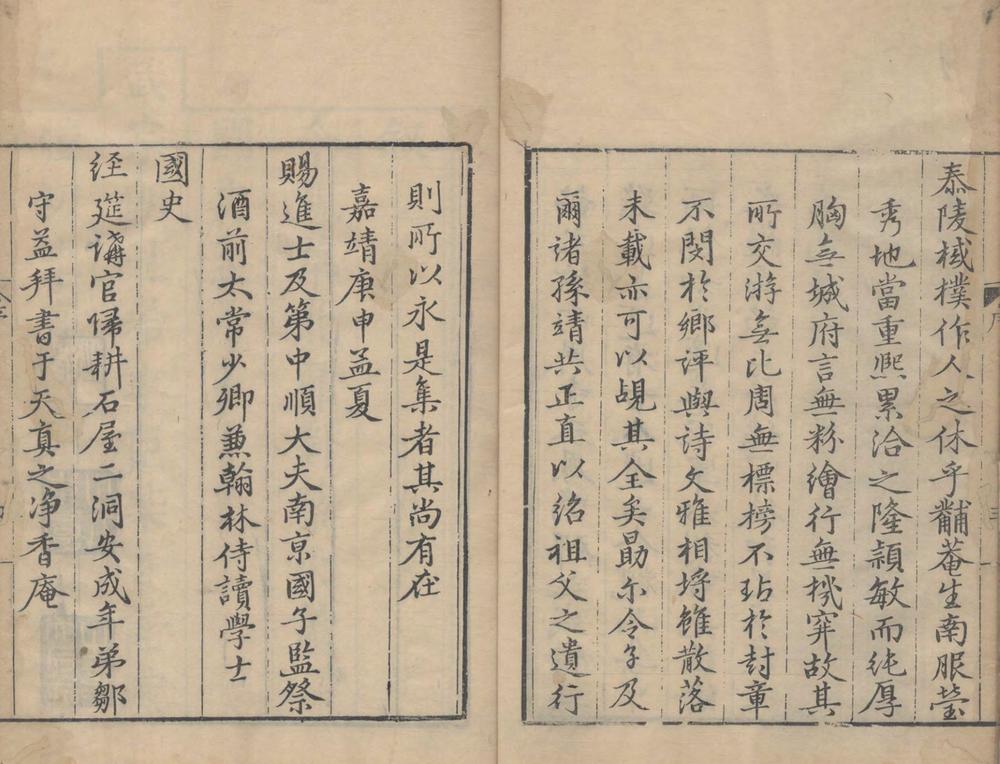 泰陵棫樸作人之休乎黼菴生南服瑩
秀地當重熙累洽之隆穎敏而純厚
胸無城府言無粉繪行無機穽故其
所交游無比周無標榜不玷於封章
不閔於鄉評與詩文雅相埒雖散落
未載亦可以覘其全矣勗尔令子及
爾諸孫靖共正直以紹祖父之遺行
則所以永是集者其尚有在
嘉靖庚申孟夏
賜進士及第中順大夫南京國子監祭
酒前太常少卿兼翰林侍讀學士
國史
經筵講官歸耕石屋二洞安成年弟鄒
守益拜書于天真之净香庵
序
三